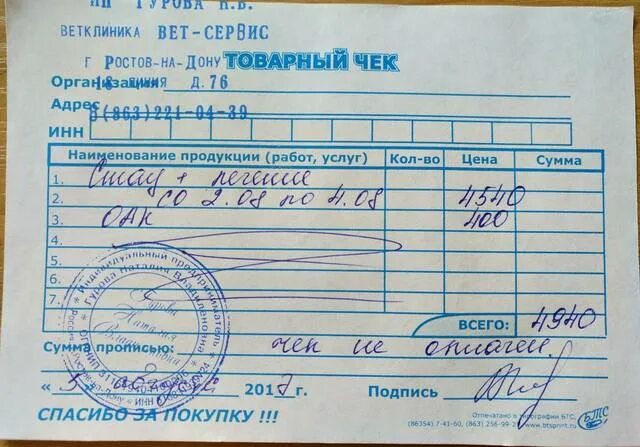 ИП ГУРОВА Н.В.
ВЕТКЛИНИКА ВЕТ-СЕРВИС
Г РОСТОВ-НА-ДОНУ ТОВАРНЫЙ ЧЕК
Организация 18 ЛИНИЯ Д.76
Адрес
8(863)221-04-39
ИНН
Наименование продукции (работ, услуг) Кол-во Цена Сумма
1. Стац + лечение
2. со 2.08 по 4.08 4540
3. ОАК 400
4.
5.
6.
7.
ВСЕГО: 4940
Сумма прописью: чек не оплачен.
« 5 2017 г. Подпись
СПАСИБО ЗА ПОКУПКУ !!!
Индивидуальный предприниматель
Гурова Наталия Владиленовна
Гурова Наталия Владиленовна
Отпечатано в типографии БТС,
(86354) 7-41-60, (863) 256-99-
www.btsprint.ru
БТС